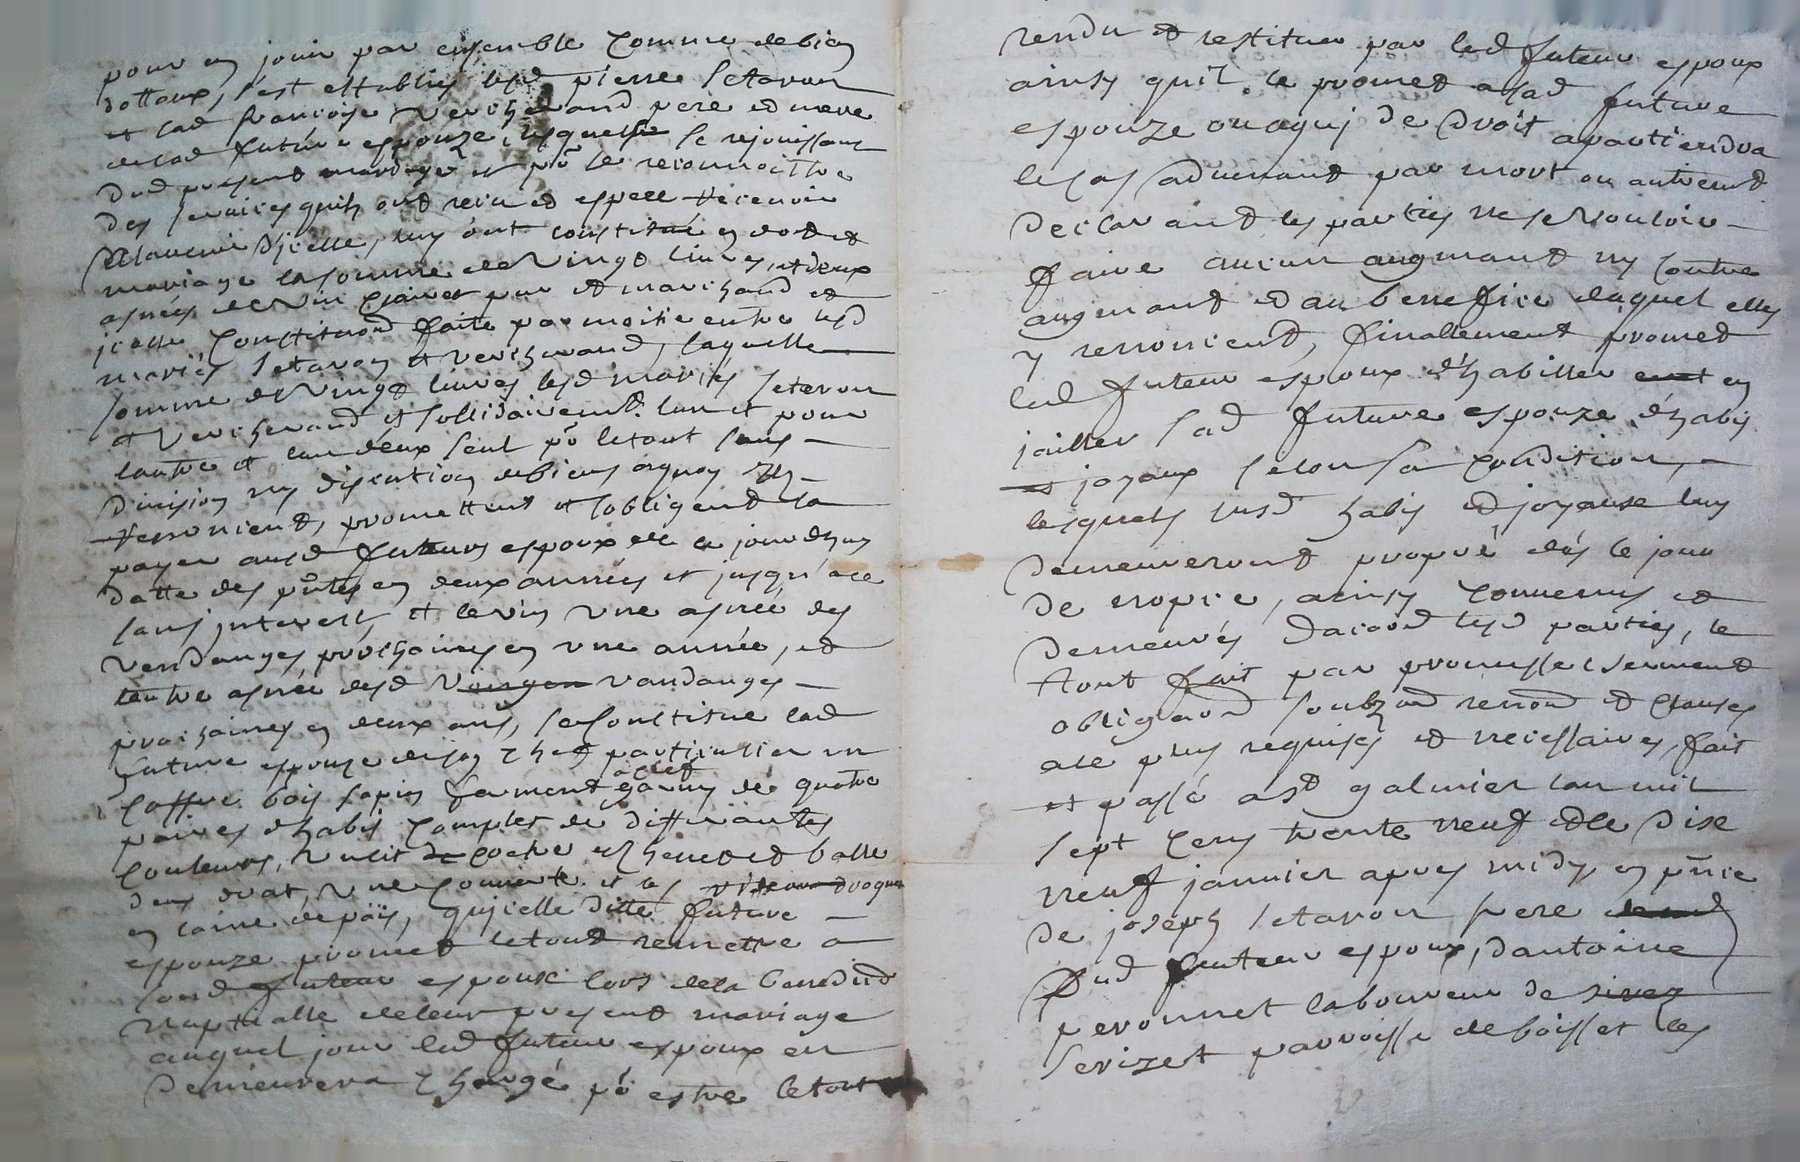 pour en jouir par ensemble comme de bien
dottaux, s'est estably lesd pierre letavon
et lad francoise Vericherand pere et mere
de lad future espouze, lesquels se rejouissant
dud present mariage et põ le reconnoitre
des services quils ont receu et espere recevoir
a lavenir d'jcelle, luy ont constitué en dot et
mariage la somme de Vingt livres, et deux
asnées de vin clairet pur et marchand et
jcelle constituaõn faite par moitie entre lesd
mariés letavon et Vericherand, laquelle
somme de Vingt livres lesd mariés letavon
et Vericherand et sollidairemt. lun et pour
lautre et lun deux seul põ le tout sans
division ny discution de biens a quoy ils
renoncient, promettent et sobligent la
payer ausd futeurs espoux de ce jourdhuy
datte des pñtes en deux années et jusqu'a ce
sans jnterests, et le vin une asnée des
Vendanges prochaines en une année, et
lautre asnée desd Vandanges
prochaines en deux ans, se constitue lad
future espouze de son chef particulier un
coffre bois sapin fermant a clef garny de quatre
paires d'habis complet de differantes
couleurs, un lit de coetre et chevet et balle
deux drat, une couverte et les
en laine de païs, qu'jcelle ditte future
espouze promet le tout remettre a
sond futeur espoux lors de la benediõn
nuptialle de leur present mariage
auquel jour led futeur espoux en
demeurera chargé põ estre le tout
rendu et restituer par led futeur espoux
ainsy quil le promet a sad future
espouze ou a qui de droit apartiendra
le cas advenant par mort ou autremt
declarant les parties ne se vouloir
faire aucun augmant ny contre
augmant et au benefice duquel elles
y renoncient, finallement promet
led futeur espoux d'habiller et en
jailler sad future espouze d'habis
et joyaux selon sa condition,
lesquels susd habis et joyause luy
demeureront propre dés le jour
de nopce, ainsy convenus et
demeurés dacord lesd parties, le
tout fait par promesse serment
obligaõn soubz renõn et clauses
a ce plus requises et necessaires, fait
et passé a st galmier lan mil
sept cens trente neuf et le dixe
neuf janvier apres midy en pñce
de joseph letavon frere
dud futeur espoux, dantoine
peronnet laboureur de
serizet parroisse de boisset les